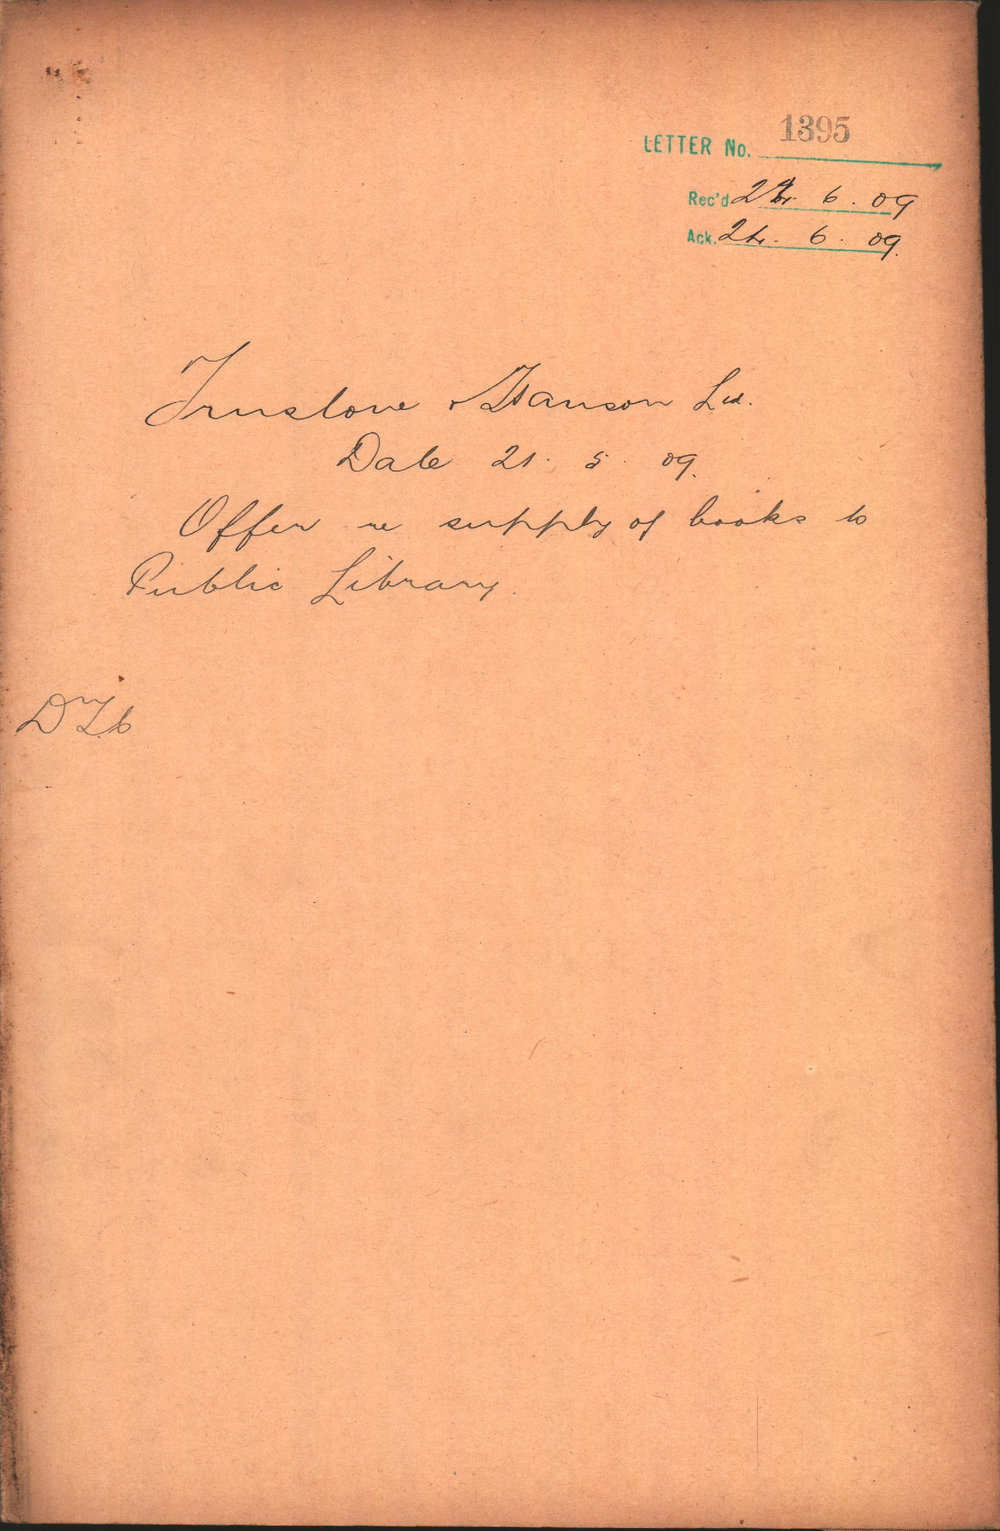 1395
LETTER No.
Rec'd 24. 6. 09
Ack. 24. 6. 09.
Truslove & Hanson Ltd.
Date 21. 5. 09.
Offer re supply of books to
Public Library.